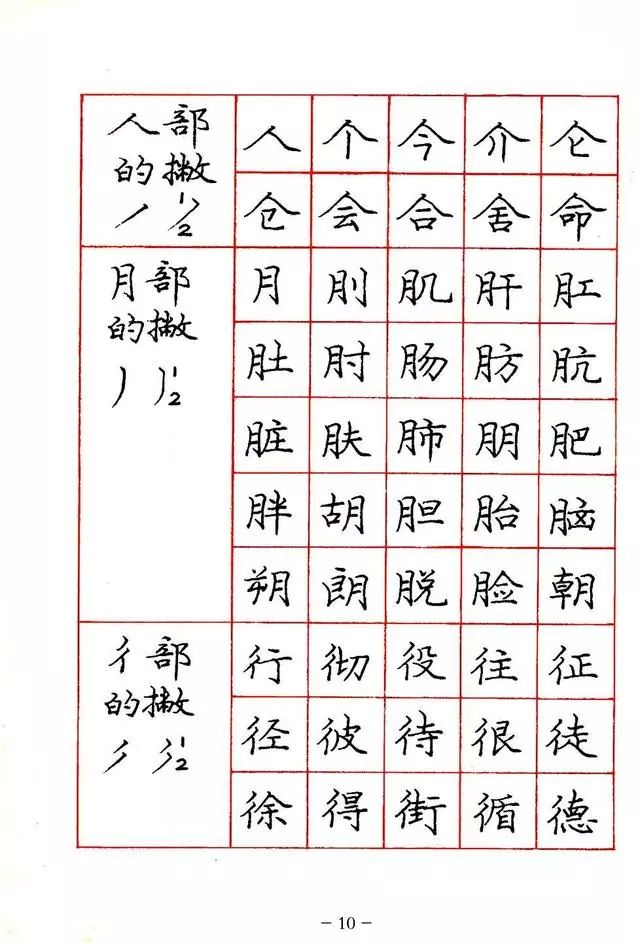 人部
的撇
丿 1/2
人个今介仑
仓会合舍命
月部
的撇
丿 1/2
月刖肌肝肛
肚肘肠肪肮
脏肤肺朋肥
胖胡胆胎脑
朔朗脱脸朝
彳部
的撇
丿 1/2
行彻役往征
径彼待很徒
徐得街循德
- 10 -